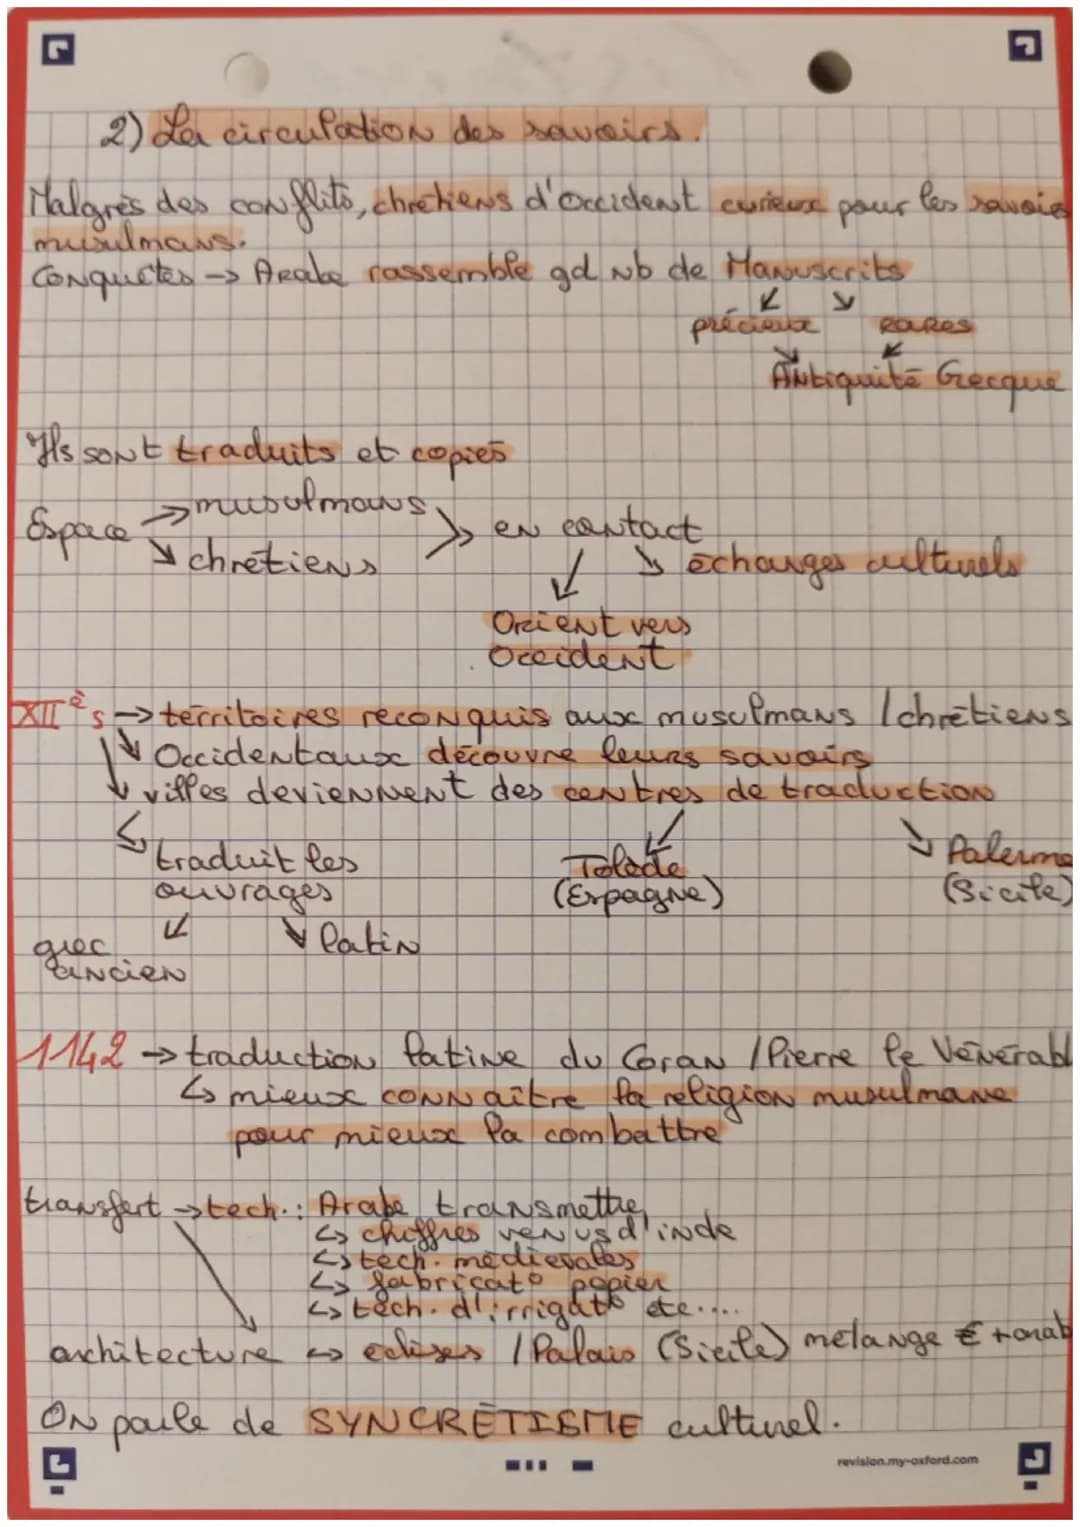 2) La circulation des savoirs.
Malgrès des conflits, chrétiens d'Occident curieux pour les savoirs
musulmans.
Conquêtes → Arabe rassemble gd nb de Manuscrits
↙ ↘
précieux rares
↘ ↙
Antiquité Grecque
Ils sont traduits et copiés
Espace → musulmans
↘ chrétiens >> en contact
↙ ↘ échanges culturels
Orient vers
Occident
XIIè s → territoires reconquis aux musulmans / chrétiens
↘ Occidentaux découvre leurs savoirs
↓ villes deviennent des centres de traduction
↳ traduit les
ouvrages
Tolède
(Espagne)
↘ Palerme
(Sicile)
↙ grec
ancien
↘ latin
1142 → traduction latine du Coran / Pierre le Vénérabl
↳ mieux connaître la religion musulmane
pour mieux la combattre
transfert → tech.: Arabe transmettre
↳ chiffres venus d'inde
↳ tech. médiévales
↳ fabricat° papier
↳ tech. d'irrigat° etc....
architecture ↔ eclises / Palais (Sicile) mélange € + arab
On parle de SYNCRÉTISME culturel.
revision.my-oxford.com